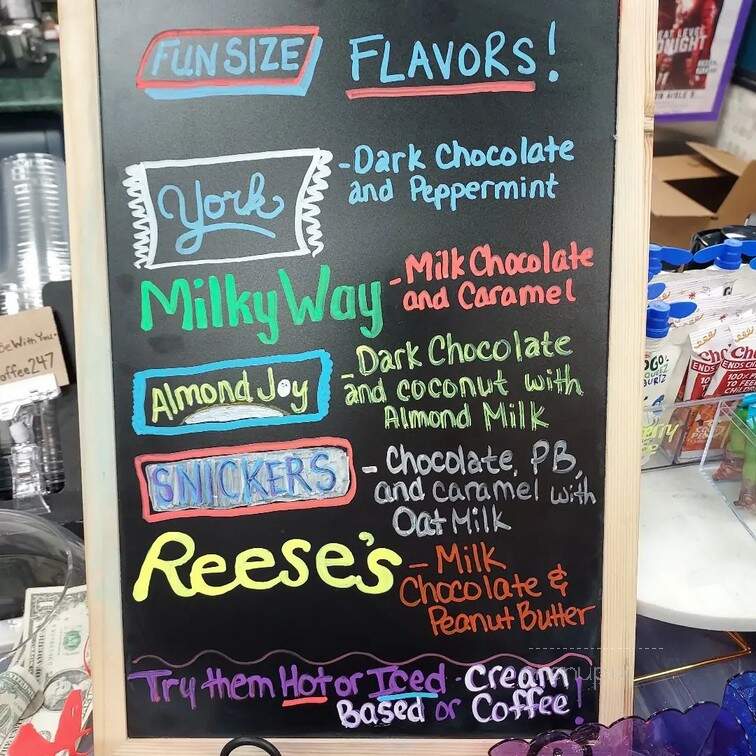 FUNSIZE FLAVORS!
York
-Dark Chocolate
and Peppermint
Milky Way
-Milk Chocolate
and Caramel
Almond Joy
-Dark Chocolate
and coconut with
Almond Milk
SNICKERS
-Chocolate, PB,
and caramel with
Oat Milk
Reese's
-Milk
Chocolate &
Peanut Butter
Try them Hot or Iced - Cream
Based or Coffee!
Be With You
offee247